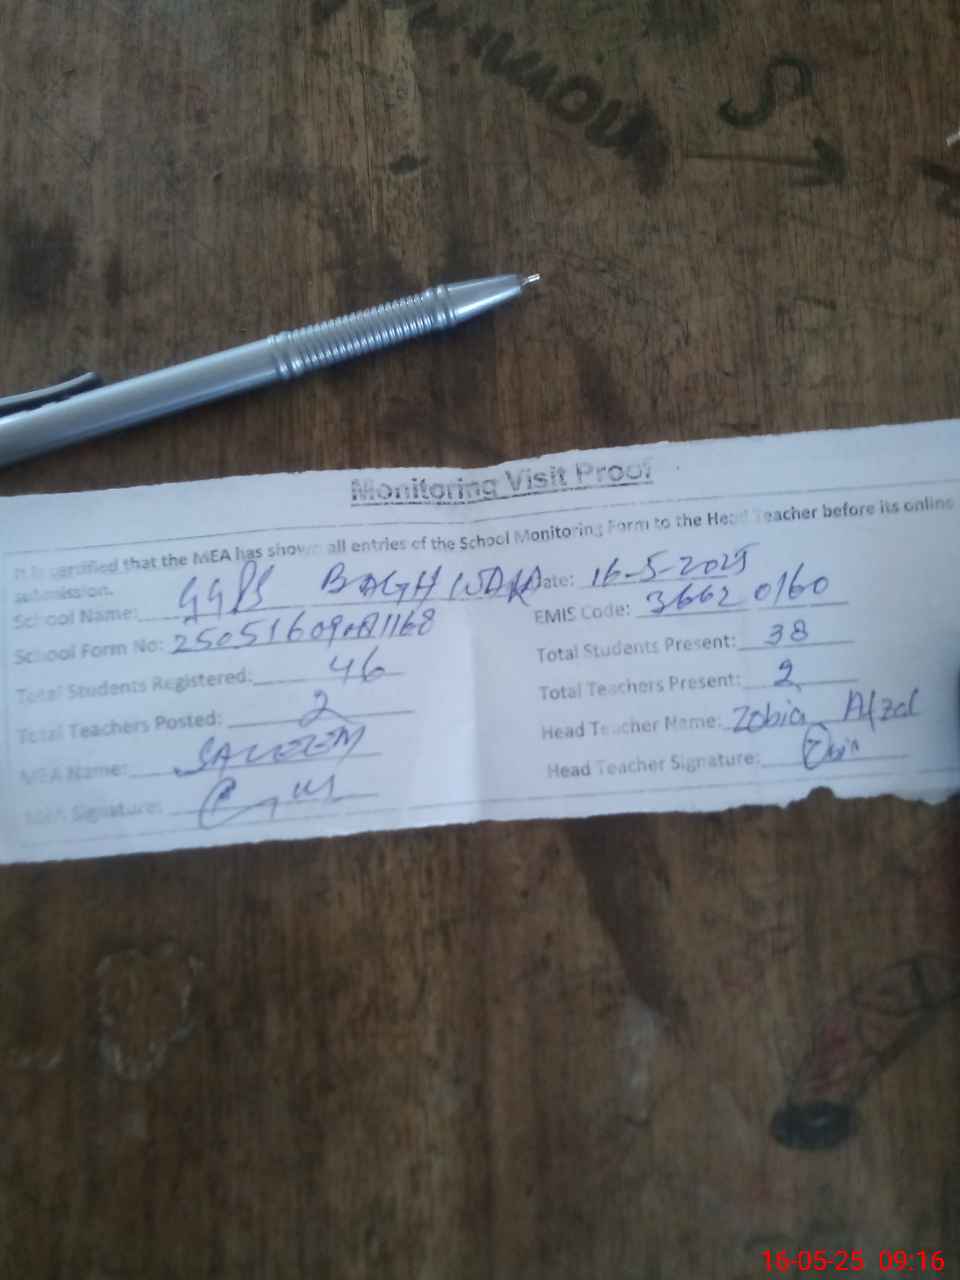 Monitoring Visit Proof
It is certified that the MEA has shown all entries of the School Monitoring Form to the Head Teacher before its online
submission.
School Name: GGPS BAGH WALA Date: 16-5-2025
School Form No: EMIS Code: 36620160
Total Students Registered: 46 Total Students Present: 38
Total Teachers Posted: 2 Total Teachers Present: 2
MEA Name: SALEEM Head Teacher Name: Zobia Afzal
MEA Signature: Head Teacher Signature:
16-05-25 09:16